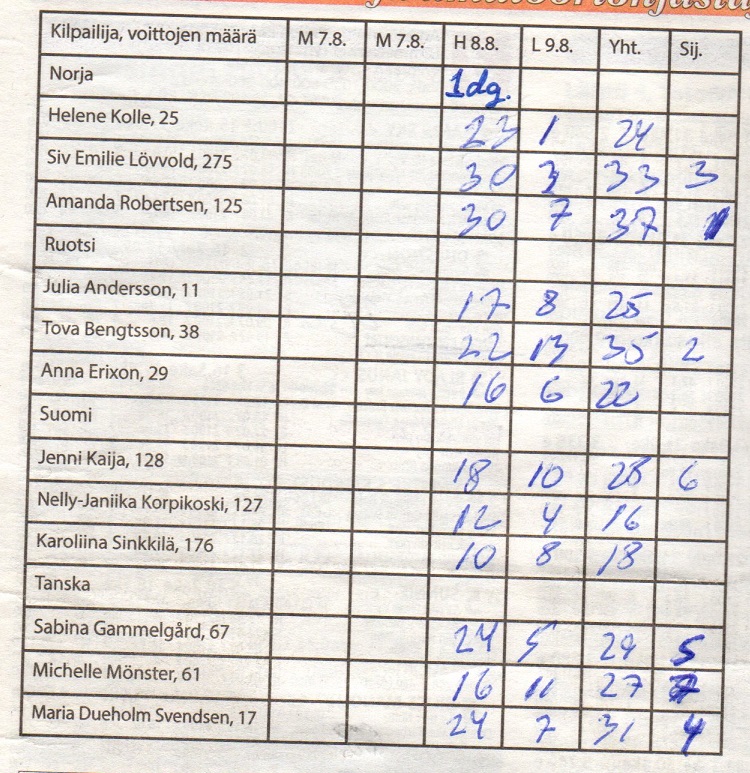 Kilpailija, voittojen määrä M 7.8. M 7.8. H 8.8. L 9.8. Yht. Sij.
Norja 1dg.
Helene Kolle, 25 23 1 24
Siv Emilie Lövvold, 275 30 3 33 3
Amanda Robertsen, 125 30 7 37 1
Ruotsi
Julia Andersson, 11 17 8 25
Tova Bengtsson, 38 22 13 35 2
Anna Erixon, 29 16 6 22
Suomi
Jenni Kaija, 128 18 10 28 6
Nelly-Janiika Korpikoski, 127 12 4 16
Karoliina Sinkkilä, 176 10 8 18
Tanska
Sabina Gammelgård, 67 24 5 29 5
Michelle Mönster, 61 16 11 27 7
Maria Dueholm Svendsen, 17 24 7 31 4